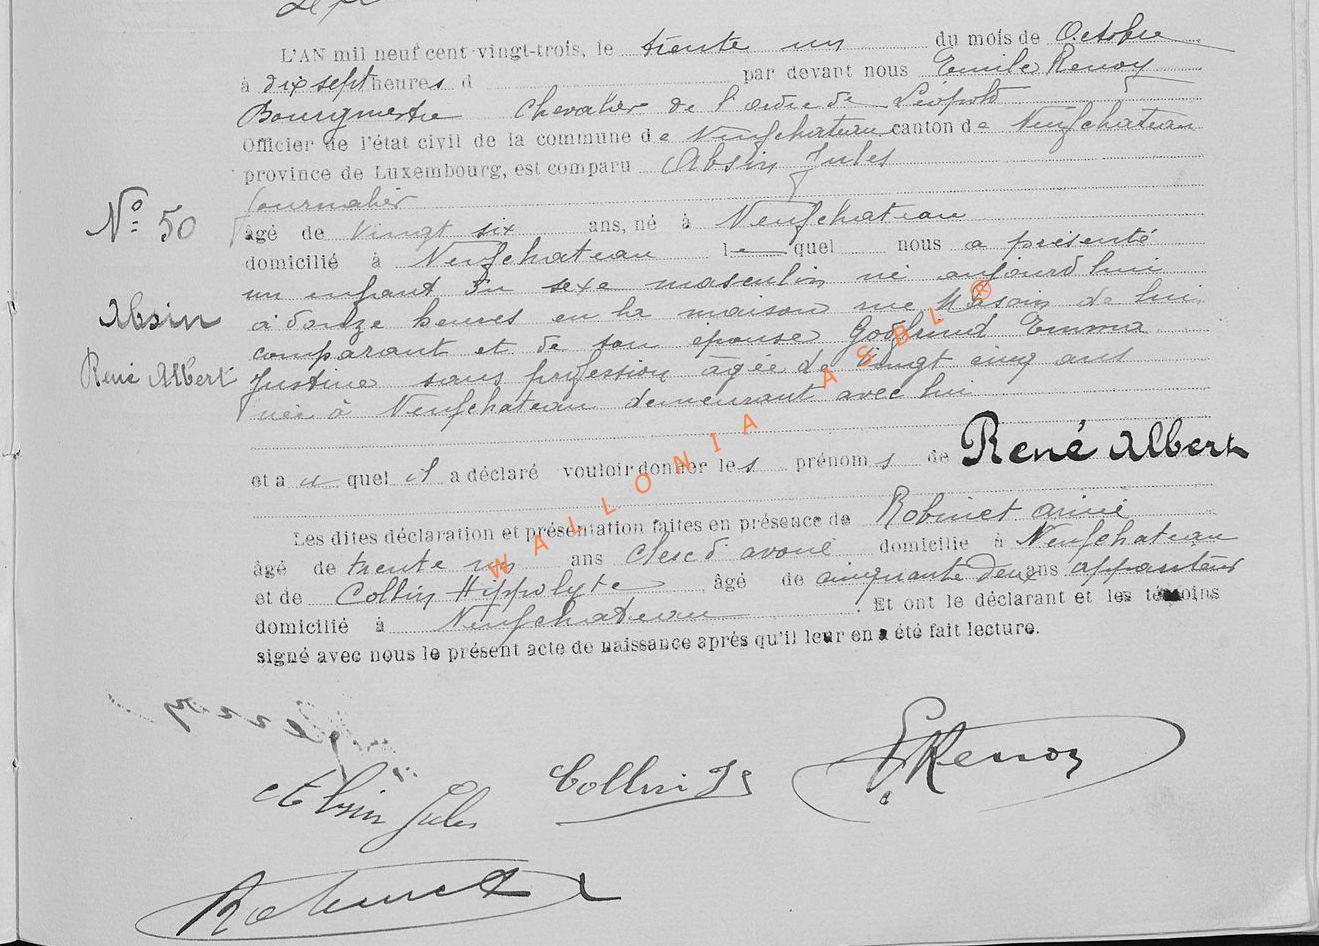 L'AN mil neuf cent vingt-trois, le trente un du mois de Octobre
à dix sept heures d par devant nous Emile Renoy
Bourgmestre Chevalier de l'ordre de Léopold
Officier de l'état civil de la commune de Neufchateau canton de Neufchateau
province de Luxembourg, est comparu Absin Jules
journalier
âgé de vingt six ans, né à Neufchateau
domicilié à Neufchateau le quel nous a présenté
N° 50
un enfant du sexe masculin né aujourd'hui
à douze heures en la maison rue de lui
comparant et de son épouse Emma
Justine sans profession âgée de vingt cinq ans
née à Neufchateau demeurant avec lui
Absin
René Albert
et a u quel il a déclaré vouloir donner les prénoms de René Albert
Les dites déclaration et présentation faites en présence de Robinet aimé
âgé de trente un ans clerc d'avoué domicilié à Neufchateau
et de Collin Hippolyte âgé de cinquante deux ans appariteur
domicilié à Neufchateau . Et ont le déclarant et les témoins
signé avec nous le présent acte de naissance après qu'il leur en a été fait lecture.
WALLONIA ASBL ®
Absin Jules
Collin
E Renoy
Robinet